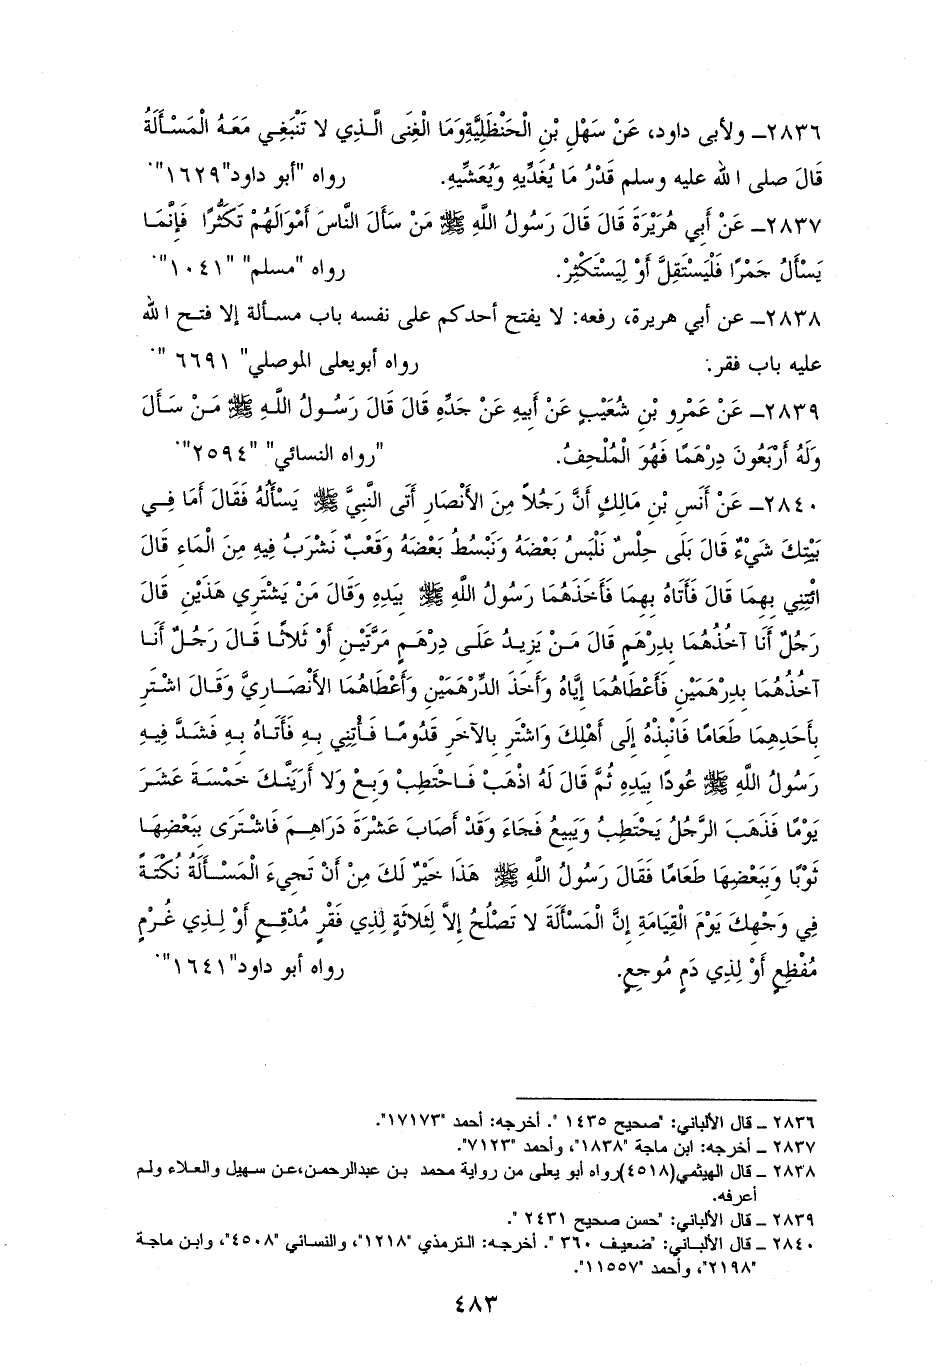 ٢٨٣٦ـ ولأبى داود، عَنْ سَهْلِ بْنِ الْحَنْظَلِيَّةِوَمَا الْغِنَى الَّذِي لا تَنْبَغِي مَعَهُ الْمَسْأَلَةُ
قَالَ صلى الله عليه وسلم قَدْرُ مَا يُغَدِّيهِ وَيُعَشِّيهِ. رواه "أبو داود"١٦٢٩".
٢٨٣٧ـ عَنْ أَبِي هُرَيْرَةَ قَالَ قَالَ رَسُولُ اللَّهِ ﷺ مَنْ سَأَلَ النَّاسَ أَمْوَالَهُمْ تَكَثُّرًا فَإِنَّمَا
يَسْأَلُ جَمْرًا فَلْيَسْتَقِلَّ أَوْ لِيَسْتَكْثِرْ. رواه "مسلم" "١٠٤١".
٢٨٣٨ـ عن أبي هريرة، رفعه: لا يفتح أحدكم على نفسه باب مسألة إلا فتح الله
عليه باب فقر: رواه أبويعلى الموصلي" ٦٦٩١ ".
٢٨٣٩ـ عَنْ عَمْرِو بْنِ شُعَيْبٍ عَنْ أَبِيهِ عَنْ جَدِّهِ قَالَ قَالَ رَسُولُ اللَّهِ ﷺ مَنْ سَأَلَ
وَلَهُ أَرْبَعُونَ دِرْهَمًا فَهُوَ الْمُلْحِفُ. "رواه النسائي" "٢٥٩٤".
٢٨٤٠ـ عَنْ أَنَسِ بْنِ مَالِكٍ أَنَّ رَجُلاً مِنَ الأَنْصَارِ أَتَى النَّبِيَّ ﷺ يَسْأَلُهُ فَقَالَ أَمَا فِي
بَيْتِكَ شَيْءٌ قَالَ بَلَى حِلْسٌ نَلْبَسُ بَعْضَهُ وَنَبْسُطُ بَعْضَهُ وَقَعْبٌ نَشْرَبُ فِيهِ مِنَ الْمَاءِ قَالَ
ائْتِنِي بِهِمَا قَالَ فَأَتَاهُ بِهِمَا فَأَخَذَهُمَا رَسُولُ اللَّهِ ﷺ بِيَدِهِ وَقَالَ مَنْ يَشْتَرِي هَذَيْنِ قَالَ
رَجُلٌ أَنَا آخُذُهُمَا بِدِرْهَمٍ قَالَ مَنْ يَزِيدُ عَلَى دِرْهَمٍ مَرَّتَيْنِ أَوْ ثَلاثًا قَالَ رَجُلٌ أَنَا
آخُذُهُمَا بِدِرْهَمَيْنِ فَأَعْطَاهُمَا إِيَّاهُ وَأَخَذَ الدِّرْهَمَيْنِ وَأَعْطَاهُمَا الأَنْصَارِيَّ وَقَالَ اشْتَرِ
بِأَحَدِهِمَا طَعَامًا فَانْبِذْهُ إِلَى أَهْلِكَ وَاشْتَرِ بِالآخَرِ قَدُومًا فَأْتِنِي بِهِ فَأَتَاهُ بِهِ فَشَدَّ فِيهِ
رَسُولُ اللَّهِ ﷺ عُودًا بِيَدِهِ ثُمَّ قَالَ لَهُ اذْهَبْ فَاحْتَطِبْ وَبِعْ وَلا أَرَيَنَّكَ خَمْسَةَ عَشَرَ
يَوْمًا فَذَهَبَ الرَّجُلُ يَحْتَطِبُ وَيَبِيعُ فَجَاءَ وَقَدْ أَصَابَ عَشْرَةَ دَرَاهِمَ فَاشْتَرَى بِبَعْضِهَا
ثَوْبًا وَبِبَعْضِهَا طَعَامًا فَقَالَ رَسُولُ اللَّهِ ﷺ هَذَا خَيْرٌ لَكَ مِنْ أَنْ تَجِيءَ الْمَسْأَلَةُ نُكْتَةً
فِي وَجْهِكَ يَوْمَ الْقِيَامَةِ إِنَّ الْمَسْأَلَةَ لا تَصْلُحُ إِلاَّ لِثَلاثَةٍ لِذِي فَقْرٍ مُدْقِعٍ أَوْ لِذِي غُرْمٍ
مُفْظِعٍ أَوْ لِذِي دَمٍ مُوجِعٍ. رواه أبو داود"١٦٤١".
٢٨٣٦ ـ قال الألباني: "صحيح ١٤٣٥ ". أخرجه: أحمد "١٧١٧٣".
٢٨٣٧ ـ أخرجه: ابن ماجة "١٨٣٨"، وأحمد "٧١٢٣".
٢٨٣٨ ـ قال الهيثمي(٤٥١٨)رواه أبو يعلى من رواية محمد بن عبدالرحمن،عن سهيل والعلاء ولم
أعرفه.
٢٨٣٩ ـ قال الألباني: "حسن صحيح ٢٤٣١ ".
٢٨٤٠ ـ قال الألباني: "ضعيف ٣٦٠ ". أخرجه: الترمذي "١٢١٨"، والنسائي "٤٥٠٨"، وابن ماجة
"٢١٩٨"، وأحمد "١١٥٥٧".
٤٨٣